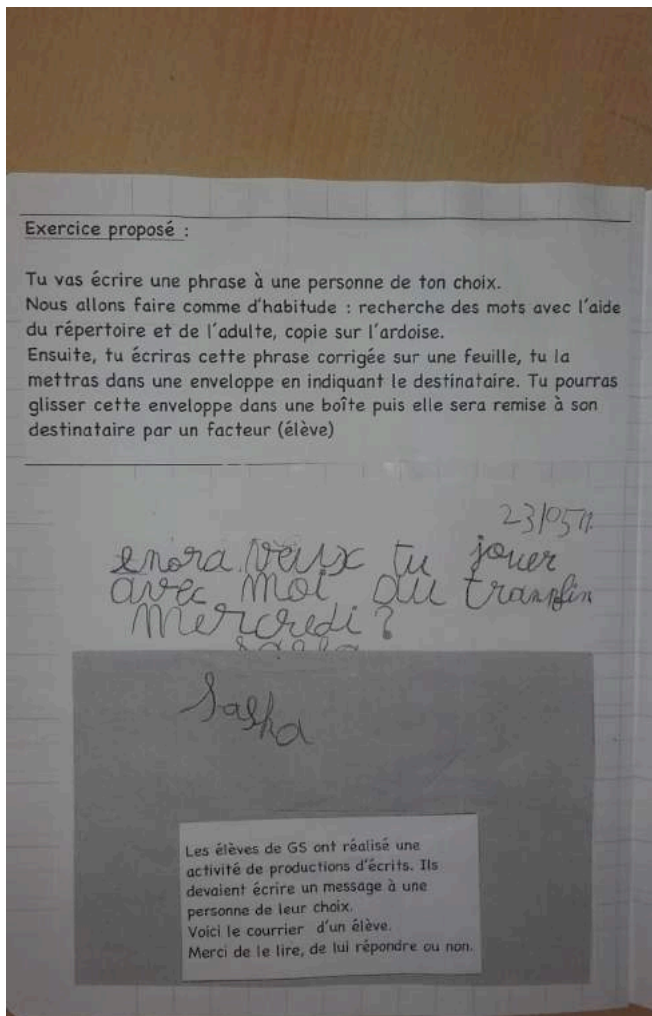 Exercice proposé :
Tu vas écrire une phrase à une personne de ton choix.
Nous allons faire comme d'habitude : recherche des mots avec l'aide
du répertoire et de l'adulte, copie sur l'ardoise.
Ensuite, tu écriras cette phrase corrigée sur une feuille, tu la
mettras dans une enveloppe en indiquant le destinataire. Tu pourras
glisser cette enveloppe dans une boîte puis elle sera remise à son
destinataire par un facteur (élève)
enora veux tu jouer
avec moi au
Mercredi ?
Sasha
Les élèves de GS ont réalisé une
activité de productions d'écrits. Ils
devaient écrire un message à une
personne de leur choix.
Voici le courrier d'un élève.
Merci de le lire, de lui répondre ou non.